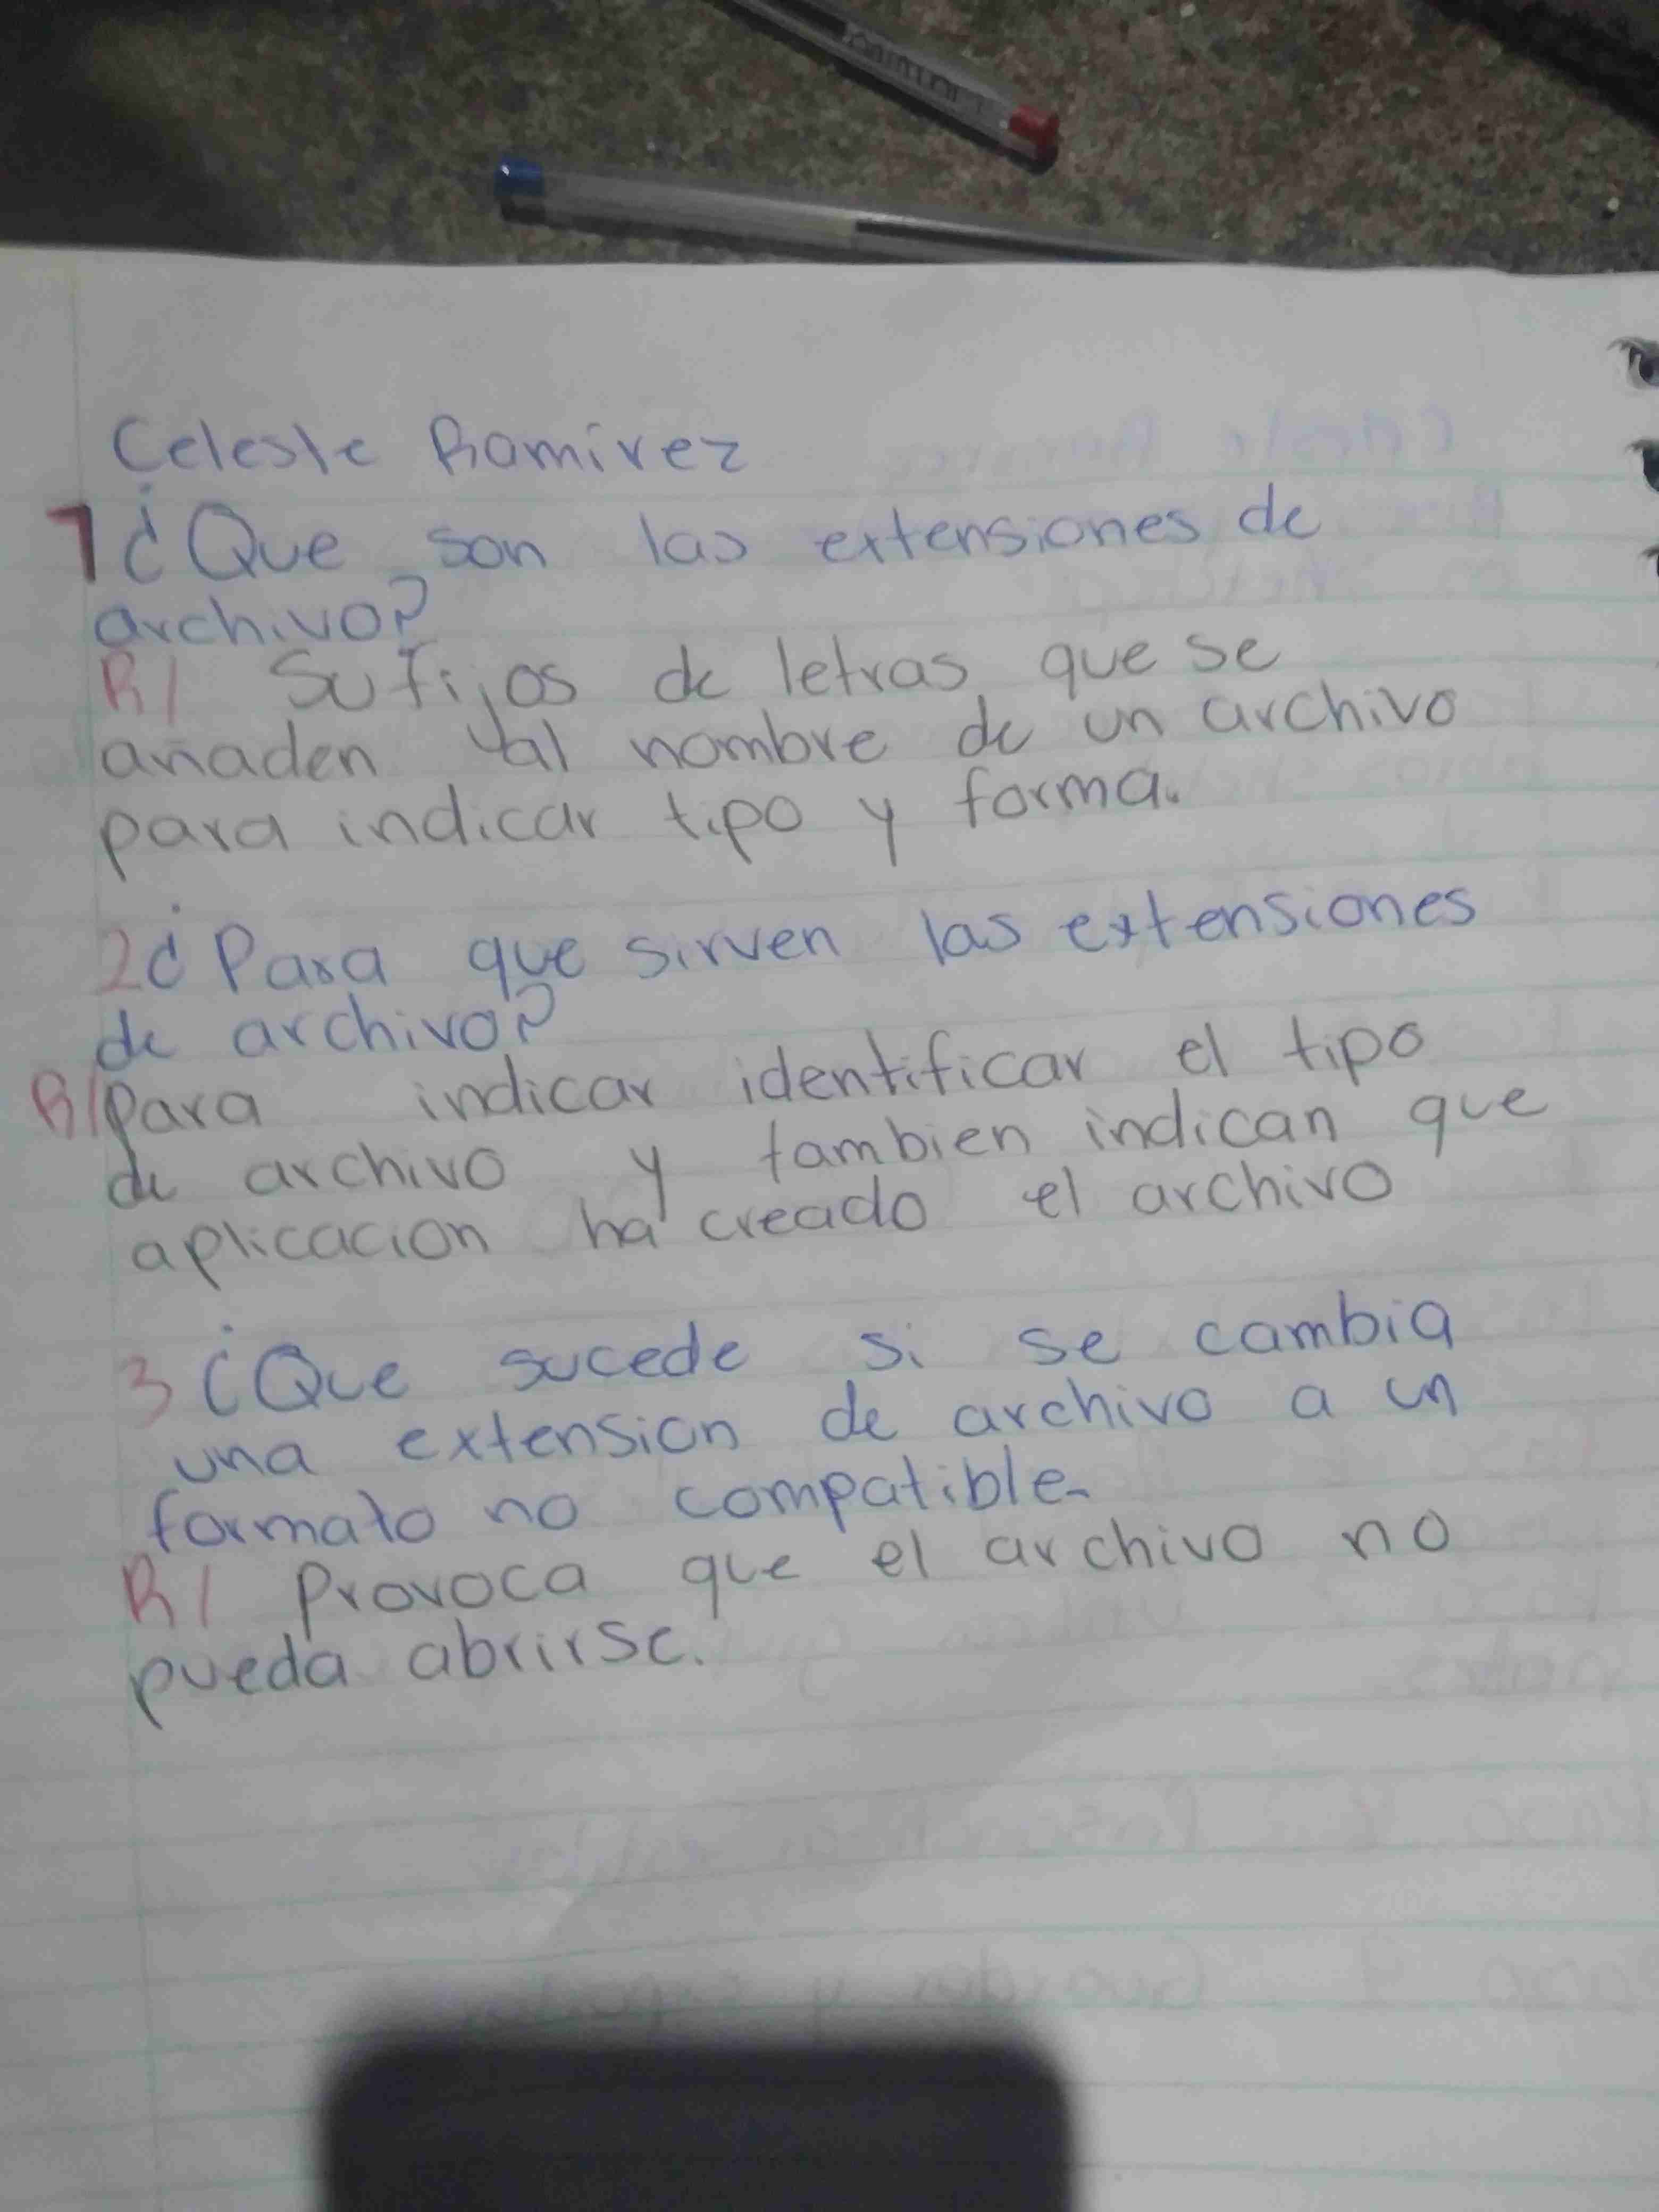 Celeste Ramirez
1 ¿Que son las extensiones de
archivo?
R/ Sufijos de letras que se
añaden al nombre de un archivo
para indicar tipo y forma.
2¿Para que sirven las extensiones
de archivo?
R/ Para indicar identificar el tipo
de archivo y tambien indican que
aplicacion ha creado el archivo
3 ¿Que sucede si se cambia
una extension de archivo a un
formato no compatible.
R/ Provoca que el archivo no
pueda abrirse.